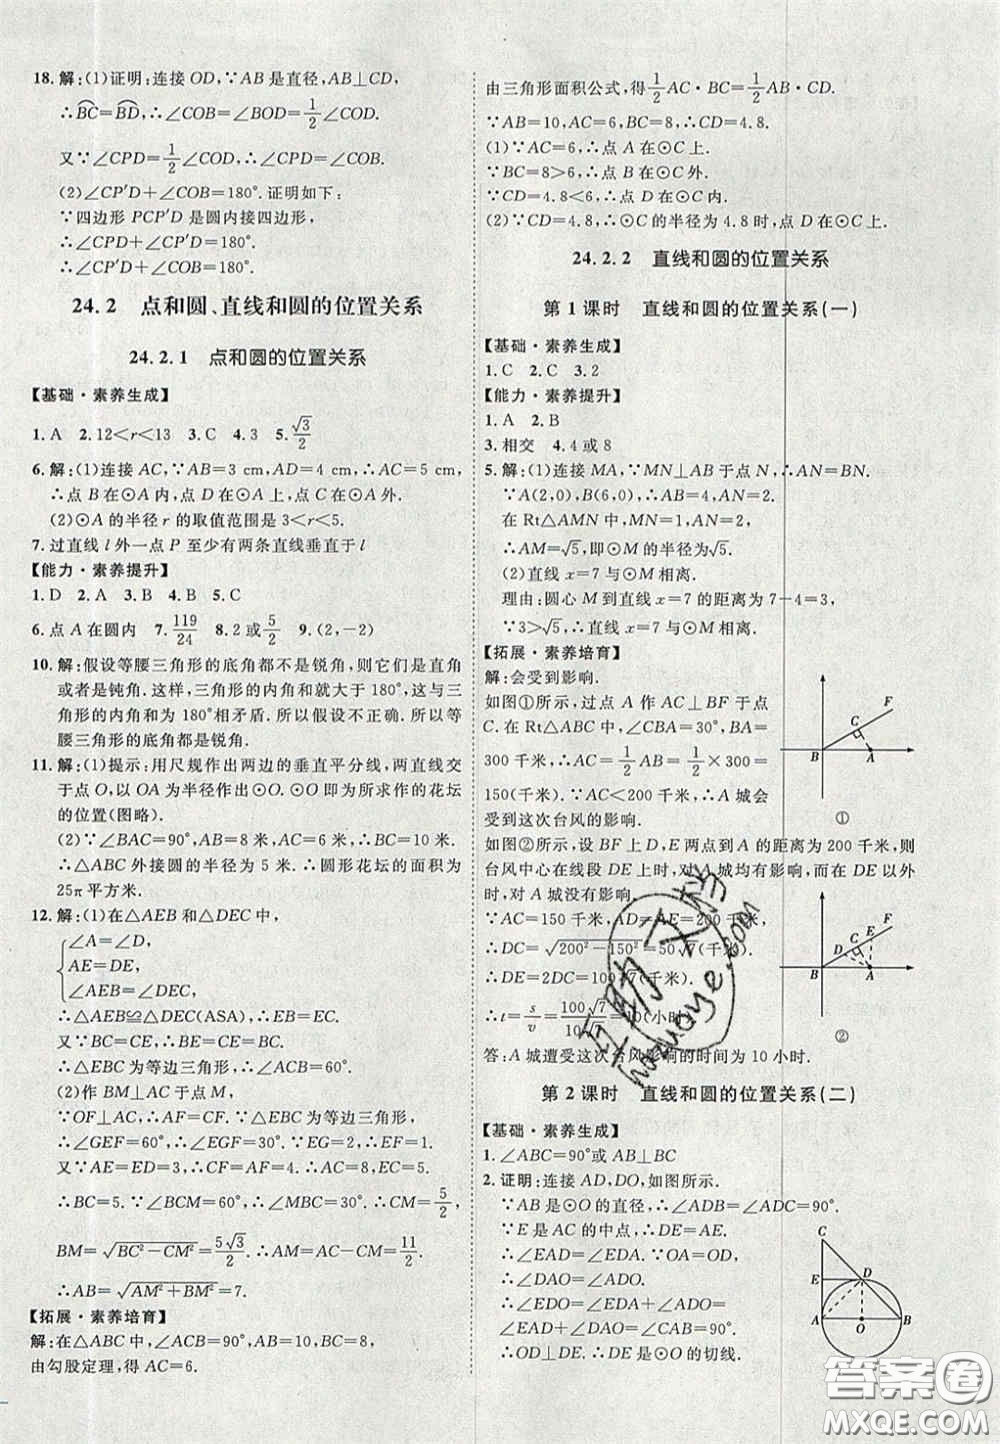 18. 解:(1)证明:连接 OD,∵AB 是直径,AB⊥CD,
∴BC=BD,∴∠COB=∠BOD=1/2∠COD.
又∵∠CPD=1/2∠COD,∴∠CPD=∠COB.
(2)∠CP′D+∠COB=180°. 证明如下:
∵四边形 PCP′D 是圆内接四边形,
∴∠CPD+∠CP′D=180°.
∴∠CP′D+∠COB=180°.
24.2 点和圆、直线和圆的位置关系
24.2.1 点和圆的位置关系
【基础·素养生成】
1. A 2. 12<r<13 3. C 4. 3 5. √3/2
6. 解:(1)连接 AC,∵AB=3 cm,AD=4 cm,∴AC=5 cm,
∴点 B 在⊙A 内,点 D 在⊙A 上,点 C 在⊙A 外.
(2)⊙A 的半径 r 的取值范围是 3<r<5.
7. 过直线 l 外一点 P 至少有两条直线垂直于 l
【能力·素养提升】
1. D 2. A 3. B 4. B 5. C
6. 点 A 在圆内 7. 119/24 8. 2 或 5/2 9. (2,-2)
10. 解:假设等腰三角形的底角都不是锐角,则它们是直角
或者是钝角. 这样,三角形的内角和就大于 180°,这与三
角形的内角和为 180°相矛盾. 所以假设不正确. 所以等
腰三角形的底角都是锐角.
11. 解:(1)提示:用尺规作出两边的垂直平分线,两直线交
于点 O,以 OA 为半径作出⊙O. ⊙O 即为所求作的花坛
的位置(图略).
(2)∵∠BAC=90°,AB=8 米,AC=6 米,∴BC=10 米.
∴△ABC 外接圆的半径为 5 米. ∴圆形花坛的面积为
25π 平方米.
12. 解:(1)在△AEB 和△DEC 中,
∠A=∠D,
AE=DE,
∠AEB=∠DEC,
∴△AEB≌△DEC(ASA). ∴EB=EC.
又∵BC=CE,∴BE=CE=BC.
∴△EBC 为等边三角形. ∴∠ACB=60°.
(2)作 BM⊥AC 于点 M,
∵OF⊥AC,∴AF=CF. ∵△EBC 为等边三角形,
∴∠GEF=60°. ∴∠EGF=30°. ∵EG=2,∴EF=1.
又∵AE=ED=3,∴CF=AF=4. ∴AC=8,EC=5.
∴BC=5. ∵∠BCM=60°,∴∠MBC=30°. ∴CM=5/2,
BM=√(BC²-CM²)=5√3/2. ∴AM=AC-CM=11/2.
∴AB=√(AM²+BM²)=7.
【拓展·素养培育】
解:在△ABC 中,∠ACB=90°,AB=10,BC=8,
由勾股定理,得 AC=6.
由三角形面积公式,得1/2AC·BC=1/2AB·CD.
∵AB=10,AC=6,BC=8,∴CD=4.8.
(1)∵AC=6,∴点 A 在⊙C 上.
∵BC=8>6,∴点 B 在⊙C 外.
∵CD=4.8<6,∴点 D 在⊙C 内.
(2)∵CD=4.8,∴⊙C 的半径为 4.8 时,点 D 在⊙C 上.
24.2.2 直线和圆的位置关系
第 1 课时 直线和圆的位置关系(一)
【基础·素养生成】
1. C 2. C 3. 2
【能力·素养提升】
1. A 2. B
3. 相交 4. 4 或 8
5. 解:(1)连接 MA,∵MN⊥AB 于点 N,∴AN=BN.
∵A(2,0),B(6,0),∴AN=2.
在 Rt△AMN 中,∵MN=1,AN=2,
∴AM=√5,即⊙M 的半径为√5.
(2)直线 x=7 与⊙M 相离.
理由:圆心 M 到直线 x=7 的距离为 7-4=3,
∵3>√5,∴直线 x=7 与⊙M 相离.
【拓展·素养培育】
解:会受到影响.
如图①所示,过点 A 作 AC⊥BF 于点
C. 在 Rt△ABC 中,∠CBA=30°,BA=
300 千米,∴AC=1/2AB=1/2×300=
150(千米). ∵AC<200 千米,∴A 城会
受到这次台风的影响.
F
C
B
A
①
如图②所示,设 BF 上 D,E 两点到 A 的距离为 200 千米,则
台风中心在线段 DE 上时,对 A 城均有影响,而在 DE 以外
时,对 A 城没有影响.
∵AC=150 千米,AD=AE=200 千米,
∴DC=√(200²-150²)=50√7(千米).
∴DE=2DC=100√7(千米).
∴t=s/v=100√7/10√7=10(小时).
答:A 城遭受这次台风影响的时间为 10 小时.
F
E
C
D
B
A
②
第 2 课时 直线和圆的位置关系(二)
【基础·素养生成】
1. ∠ABC=90°或 AB⊥BC
2. 证明:连接 AD,DO,如图所示.
∵AB 是⊙O 的直径,∴∠ADB=∠ADC=90°.
∵E 是 AC 的中点,∴DE=AE.
∴∠EAD=∠EDA. ∵OA=OD,
∴∠DAO=∠ADO.
∴∠EDO=∠EDA+∠ADO
=∠EAD+∠DAO=∠CAB=90°.
∴OD⊥DE. ∴DE 是⊙O 的切线.
C
E
D
A
O
B
互助文档
huzuoye.com
答案圈
MXQE.COM